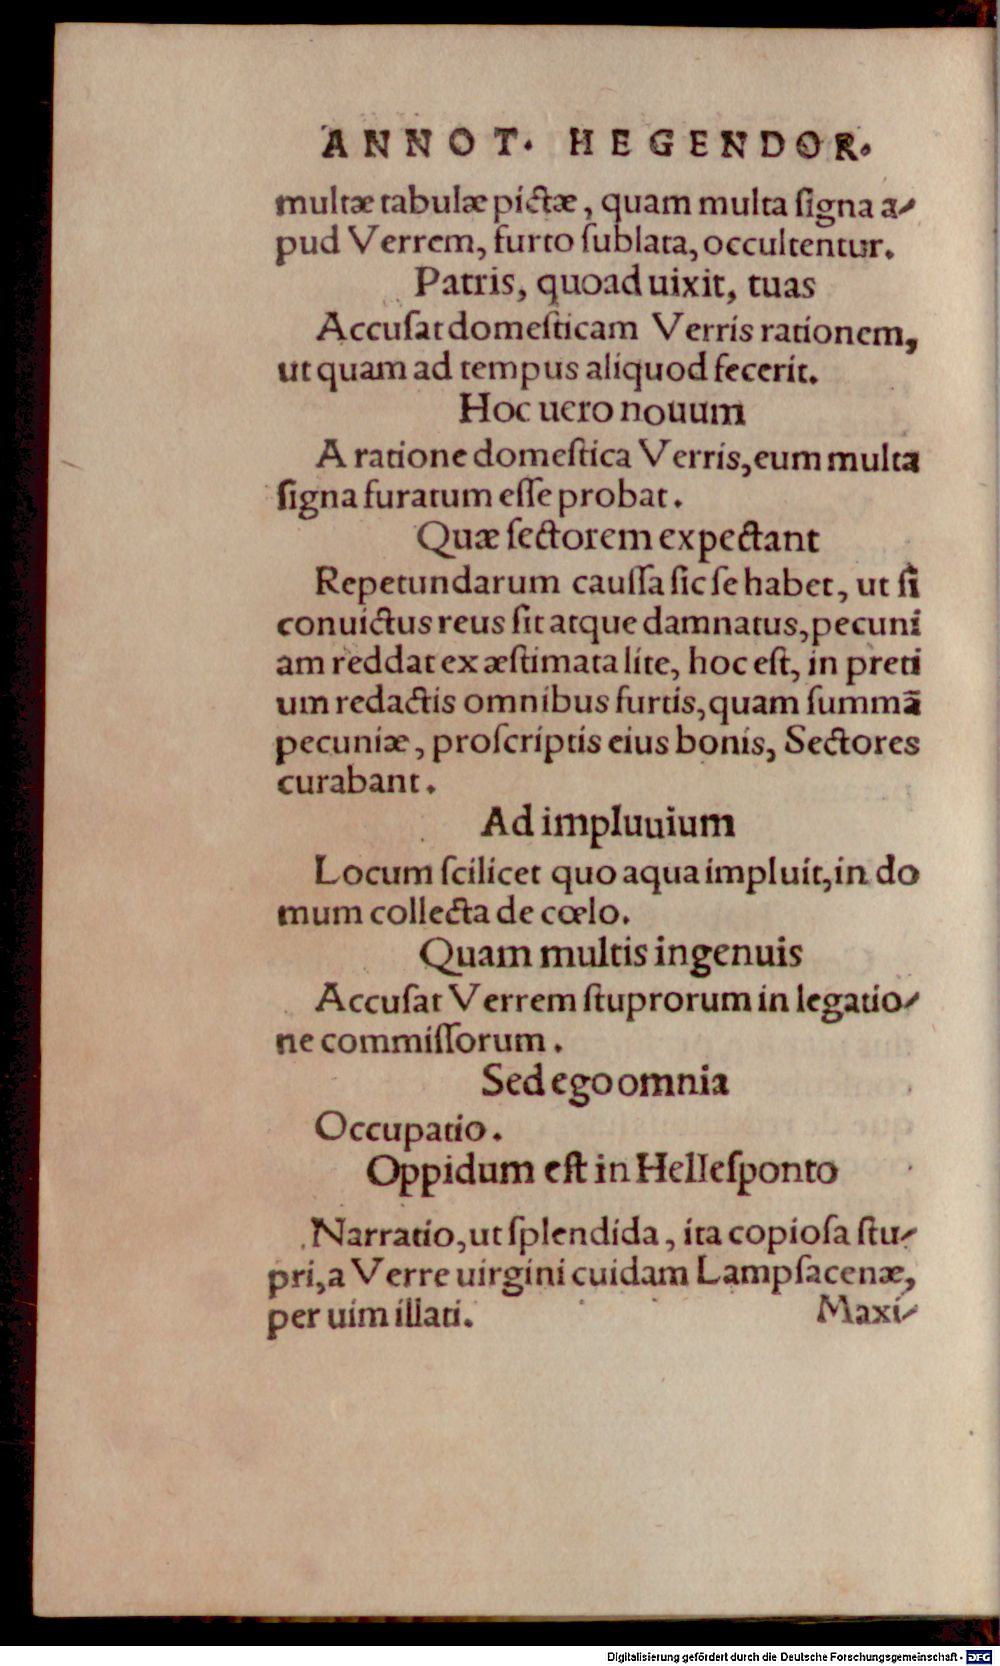 ANNOT. HEGENDOR.
multæ tabulæ pictæ, quam multa ſigna a-
pud Verrem, furto ſublata, occultentur.
Patris, quoad uixit, tuas
Accuſat domeſticam Verris rationem,
ut quam ad tempus aliquod fecerit.
Hoc uero nouum
A ratione domeſtica Verris, eum multa
ſigna furatum eſſe probat.
Quæ ſectorem expectant
Repetundarum cauſſa ſic ſe habet, ut ſi
conuictus reus ſit atque damnatus, pecuni
am reddat ex æſtimata lite, hoc eſt, in preti
um redactis omnibus furtis, quam ſummã
pecuniæ, proſcriptis eius bonis, Sectores
curabant.
Ad impluuium
Locum ſcilicet quo aqua impluit, in do
mum collecta de cœlo.
Quam multis ingenuis
Accuſat Verrem ſtuprorum in legatio-
ne commiſſorum.
Sed ego omnia
Occupatio.
Oppidum eſt in Helleſponto
Narratio, ut ſplendida, ita copioſa ſtu-
pri, a Verre uirgini cuidam Lampſacenæ,
per uim illati.
Maxi-
Digitalisierung gefördert durch die Deutsche Forschungsgemeinschaft - DFG